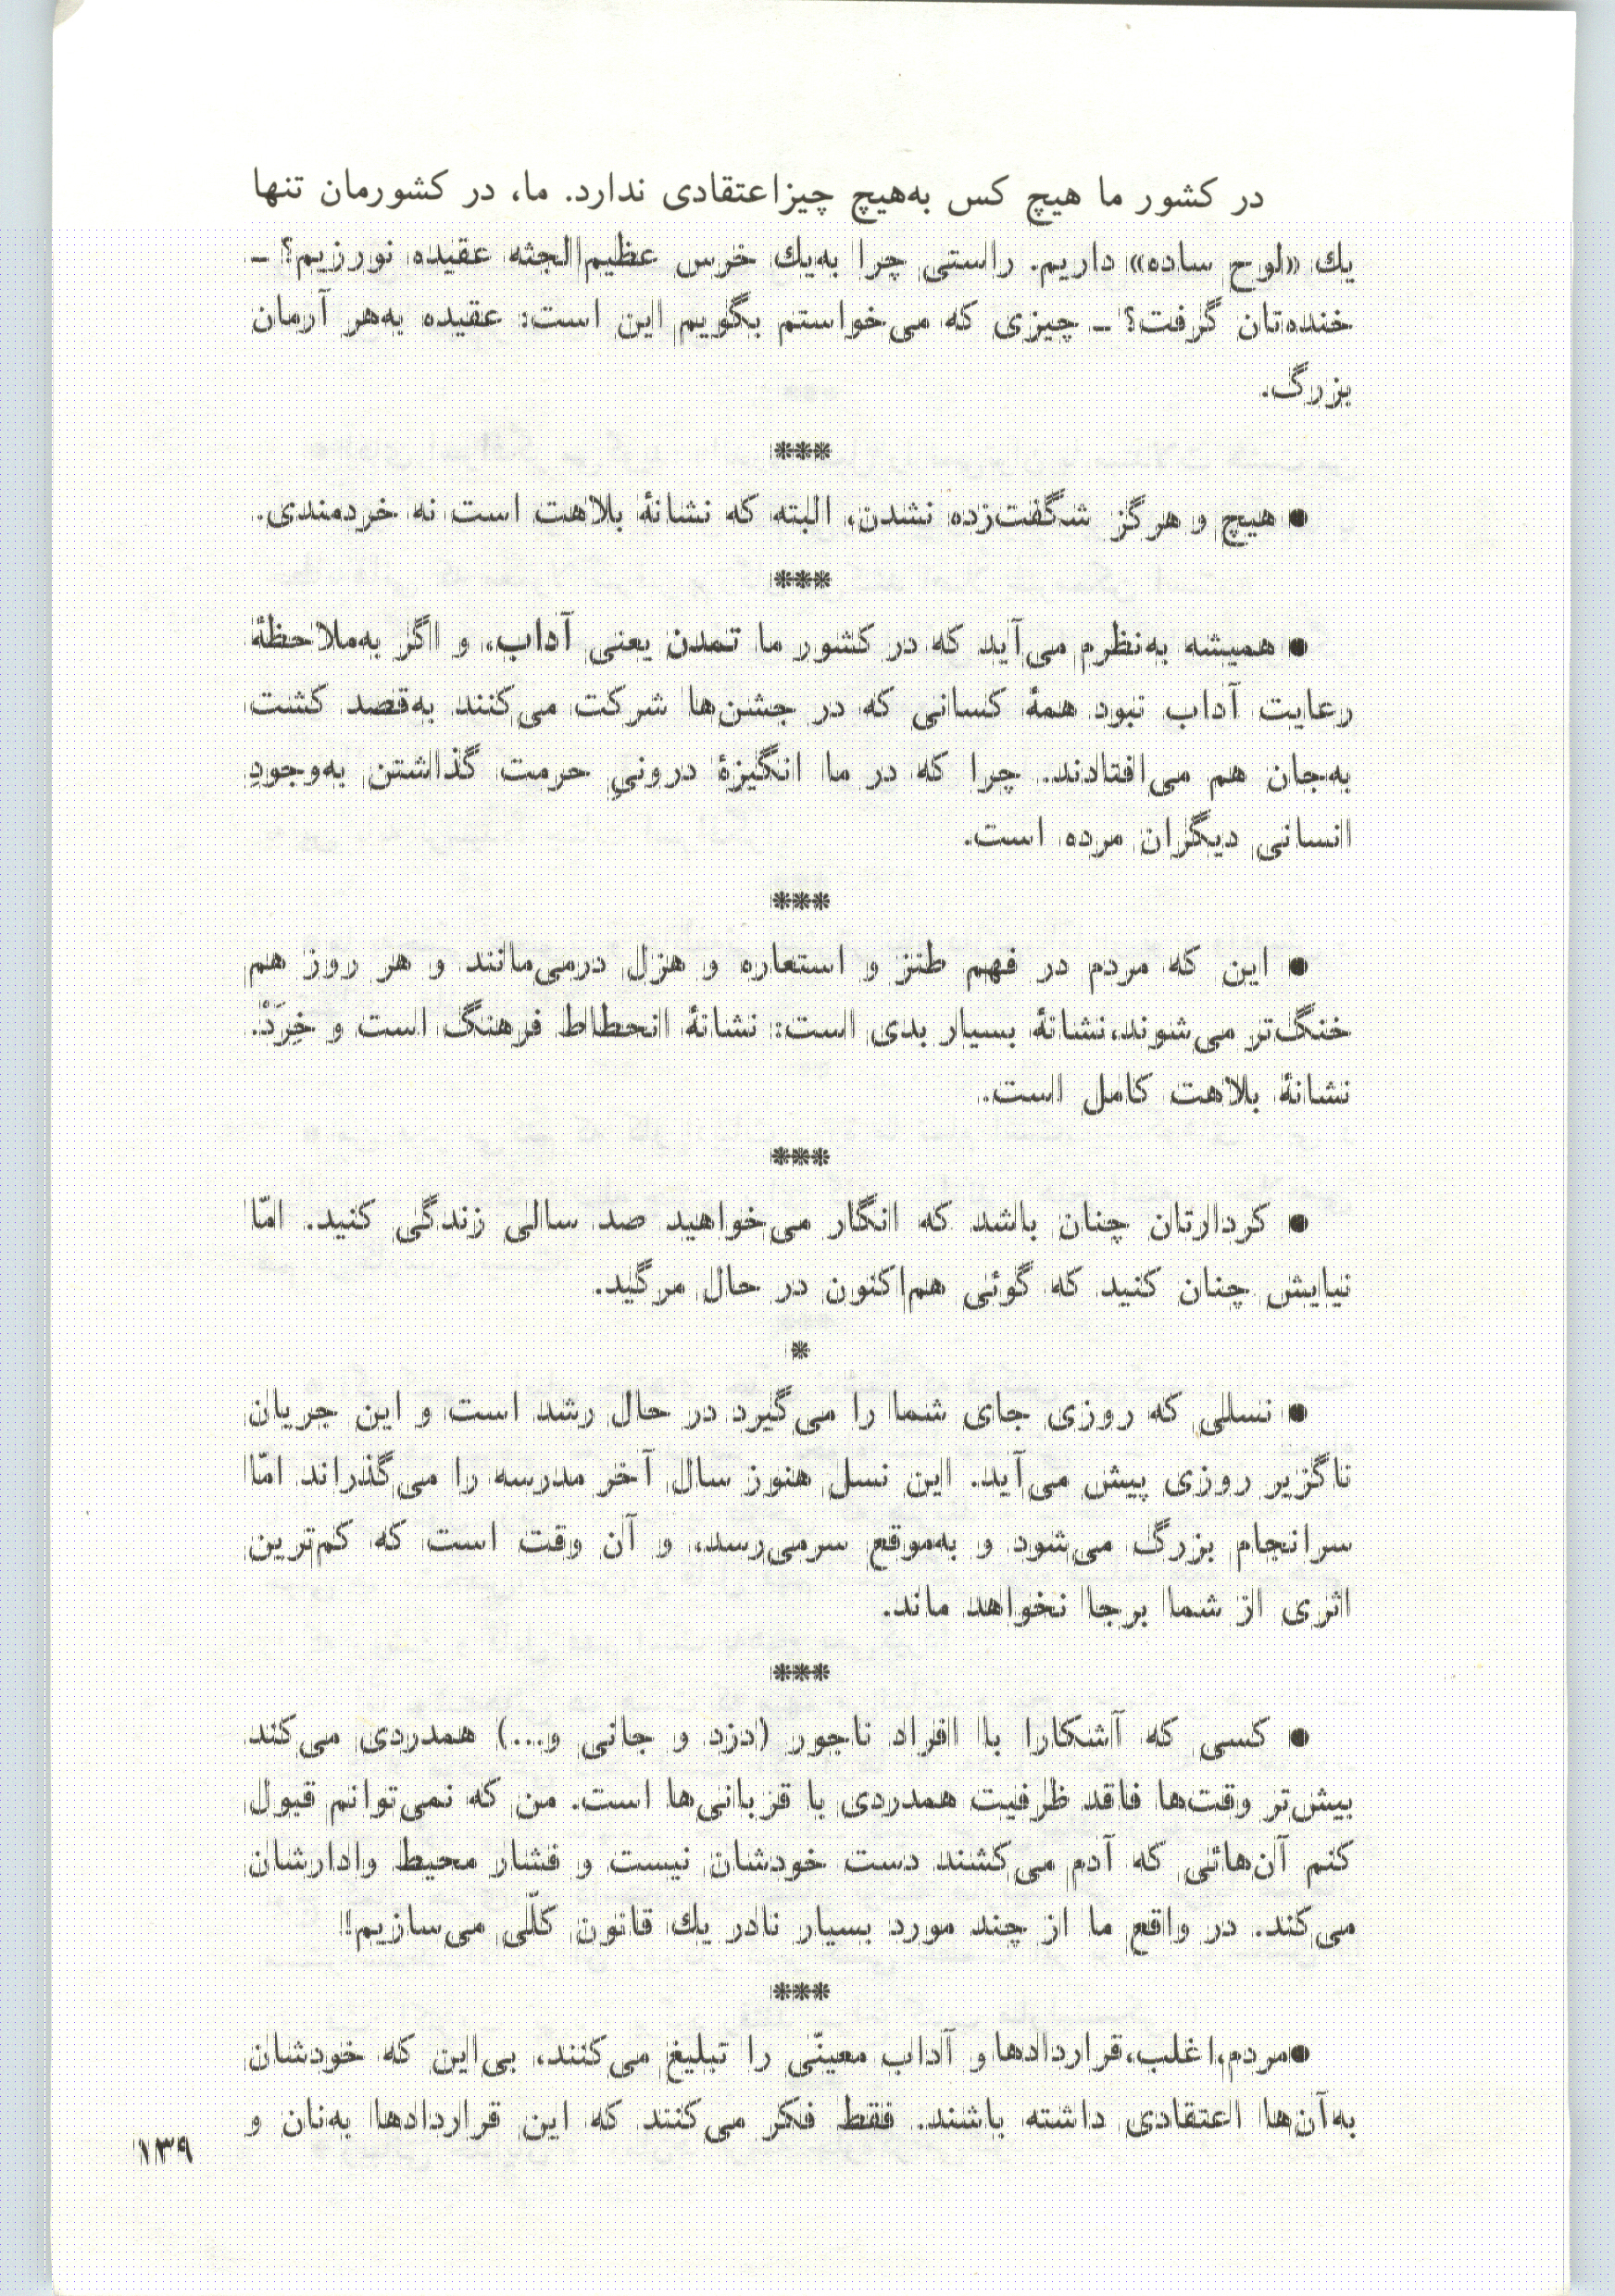 در کشور ما هیچ کس به‌هیچ چیزاعتقادی ندارد. ما، در کشورمان تنها
یك «لوح ساده» داریم. راستی چرا به‌یك خرس عظیم‌الجثه عقیده نورزیم؟ ـ
خنده‌تان گرفت؟ ـ چیزی که می‌خواستم بگویم این است: عقیده به‌هر آرمان
بزرگ.
***
● هیچ و هرگز شگفت‌زده نشدن، البته که نشانهٔ بلاهت است نه خردمندی.
***
● همیشه به‌نظرم می‌آید که در کشور ما تمدن یعنی آداب، و اگر به‌ملاحظهٔ
رعایت آداب نبود همهٔ کسانی که در جشن‌ها شرکت می‌کنند به‌قصد کشت
به‌جان هم می‌افتادند. چرا که در ما انگیزهٔ درونیِ حرمت گذاشتن به‌وجودِ
انسانی دیگران مرده است.
***
● این که مردم در فهم طنز و استعاره و هزل درمی‌مانند و هر روز هم
خنگ‌تر می‌شوند،نشانهٔ بسیار بدی است: نشانهٔ انحطاط فرهنگ است و خِرَدْ.
نشانهٔ بلاهت کامل است.
***
● کردارتان چنان باشد که انگار می‌خواهید صد سالی زندگی کنید. امّا
نیایش چنان کنید که گوئی هم‌اکنون در حال مرگید.
*
● نسلی که روزی جای شما را می‌گیرد در حال رشد است و این جریان
ناگزیر روزی پیش می‌آید. این نسل هنوز سال آخر مدرسه را می‌گذراند امّا
سرانجام بزرگ می‌شود و به‌موقع سرمی‌رسد، و آن وقت است که کم‌ترین
اثری از شما برجا نخواهد ماند.
***
● کسی که آشکارا با افراد ناجور (دزد و جانی و...) همدردی می‌کند
بیش‌تر وقت‌ها فاقد ظرفیت همدردی با قربانی‌ها است. من که نمی‌توانم قبول
کنم آن‌هائی که آدم می‌کشند دست خودشان نیست و فشار محیط وادارشان
می‌کند. در واقع ما از چند مورد بسیار نادر یك قانون کلّی می‌سازیم!
***
●مردم،اغلب،قراردادها و آداب معیّنی را تبلیغ می‌کنند، بی‌این که خودشان
به‌آن‌ها اعتقادی داشته باشند. فقط فکر می‌کنند که این قراردادها به‌نان و
۱۳۹